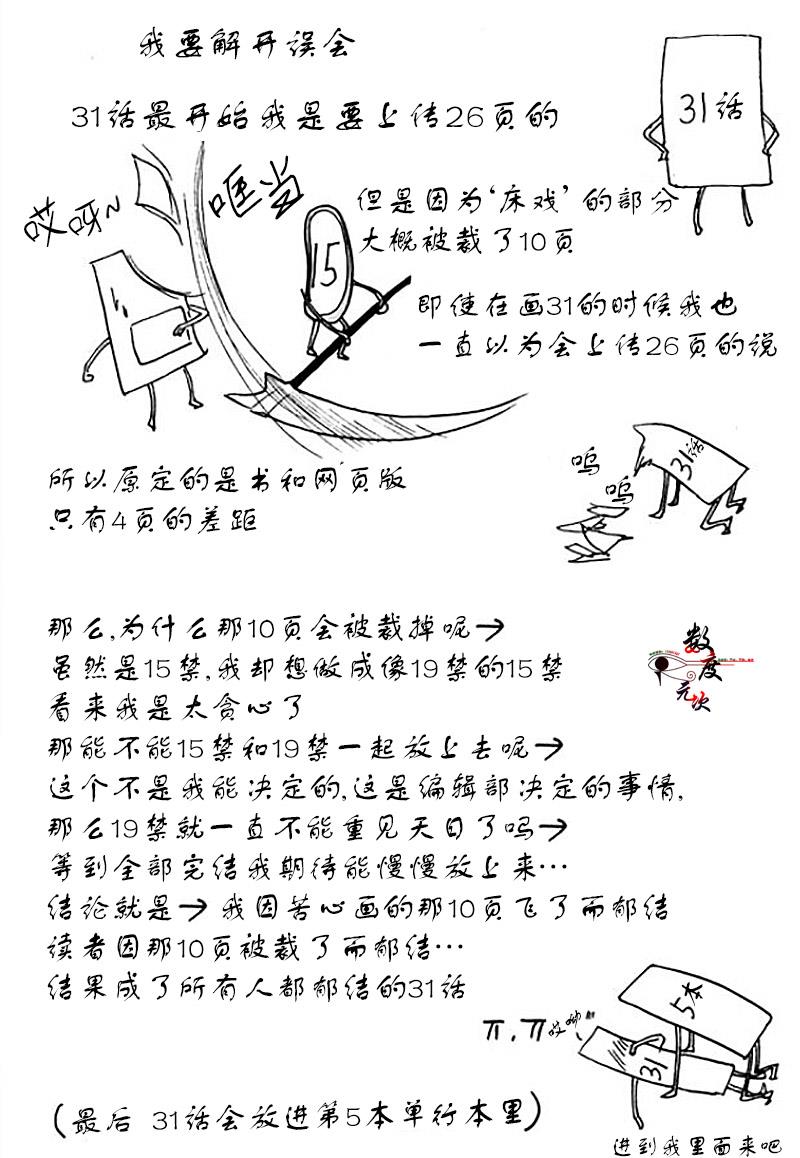 我要解开误会
31话最开始我是要上传26页的
31话
哎呀~
哐当
15
但是因为‘床戏’的部分
大概被裁了10页
即使在画31的时候我也
一直以为会上传26页的说
所以原定的是书和网页版
只有4页的差距
31话
呜
呜
那么,为什么那10页会被裁掉呢→
虽然是15禁,我却想做成像19禁的15禁
看来我是太贪心了
那能不能15禁和19禁一起放上去呢→
这个不是我能决定的,这是编辑部决定的事情,
那么19禁就一直不能重见天日了吗→
等到全部完结我期待能慢慢放上来…
结论就是→ 我因苦心画的那10页飞了而郁结
读者因那10页被裁了而郁结…
结果成了所有人都郁结的31话
数
度
元次
5本
31
ㅠ.ㅠ哎呦
(最后 31话会放进第5本单行本里)
进到我里面来吧